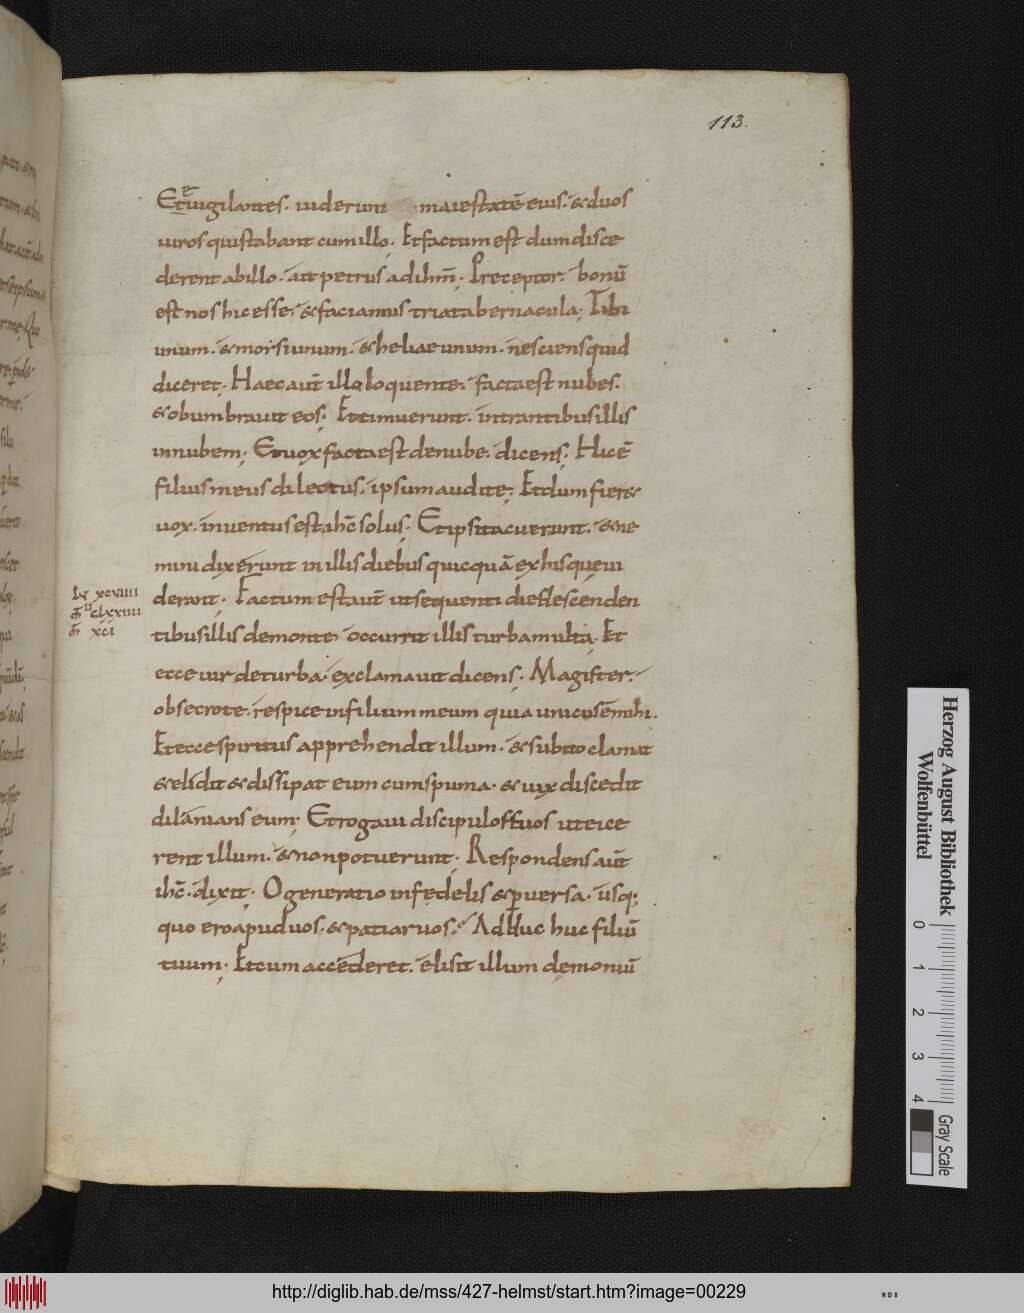 113.
Et euigilantes. uiderunt maiestatē eius. & duos
uiros qui stabant cum illo. Et factum est dum disce
derent ab illo. ait petrus ad ihm̄. Preceptor. bonū
est nos hic esse. & faciamus tria tabernacula. Tibi
unum. & morsi unum. & heliae unum. nesciens quid
diceret. Haec aut̄ illo loquente. facta est nubes.
& obumbrauit eos. Et timuerunt. intrantibus illis
in nubem. Et uox facta est de nube. dicens. Hic ē
filius meus dilectus. ipsum audite. Et dum fier&
uox. inuentus est ihc̄ solus. Et ipsi tacuerunt. & ne
mini dixerunt in illis diebus quicquā ex his que ui
derant. Factum est aut̄ in sequenti die descenden
tibus illis de monte. occurrit illis turba multa. Et
ecce uir de turba. exclamauit dicens. Magister.
obsecro te. respice in filium meum quia unicus ē mihi.
Et ecce spiritus apprehendit illum. & subito clamat
& elidit & dissipat eum cum spuma. & uix discedit
dilanians eum. Et rogaui discipulos tuos ut eice
rent illum. & non potuerunt. Respondens aut̄
ihc̄. dixit. O generatio infedelis & ꝑuersa. usq;
quo ero apud uos. & patiar uos. Adhuc huc filiū
tuum. Et cum accederet. elisit illum demoniū
Lc xcviiii
m̄ clxxiiii
m̄ xci
Herzog August Bibliothek
Wolfenbüttel
0 1 2 3 4
Gray Scale
http://diglib.hab.de/mss/427-helmst/start.htm?image=00229